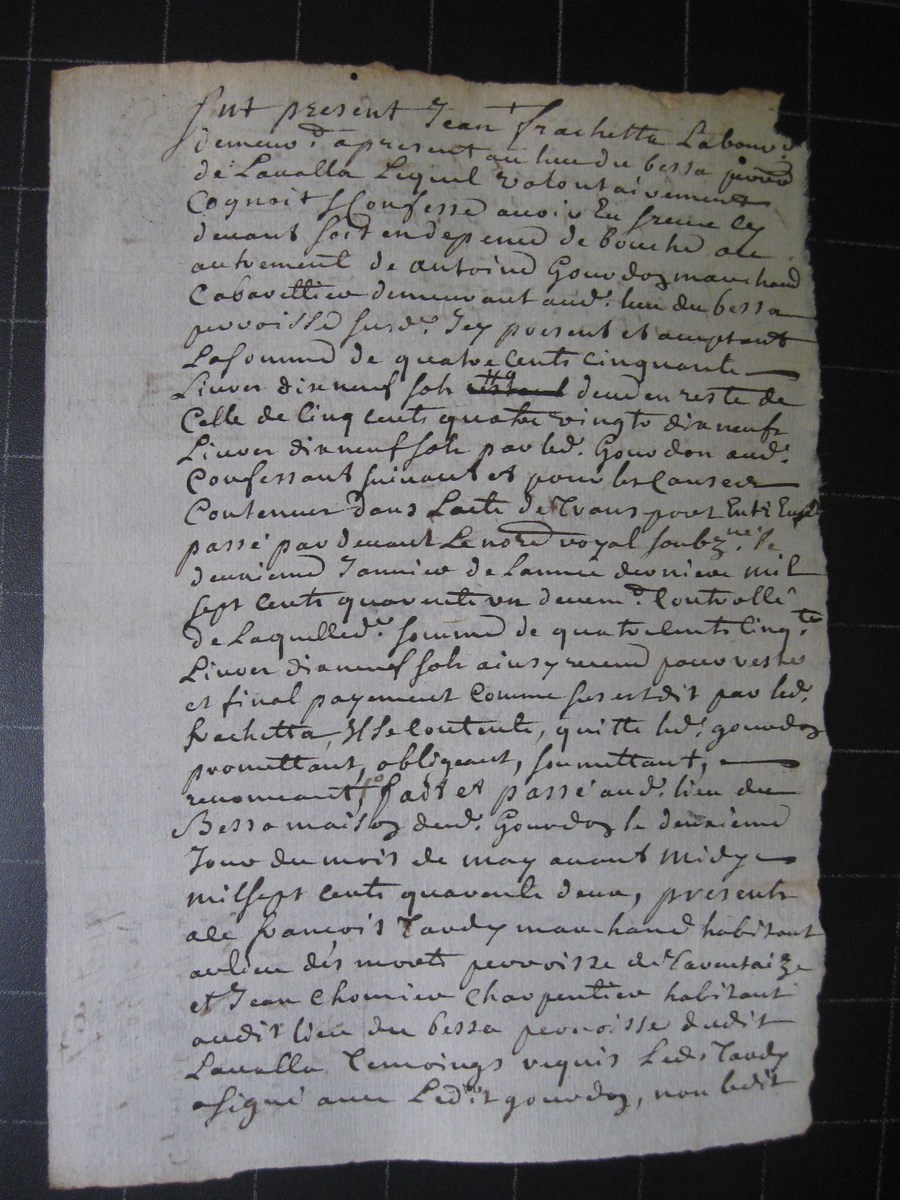 fut present Jean frachetta Labour.r
demeur.t apresent au lieu du bessa perroe
de Lavalla Lequel volontairement
Cognoit & Confesse avoir Eu & receu cy
devant soit en depence de bouche ou
autrement de antoine Gourdoz marchand
Cabarettier demeurant aud.t lieu du bessa
perroisse susd.e Icy present et acceptant
La somme de quatre cents cinquante
Livres dixneuf sols deue en reste de
Celle de Cinq cents quatre vingts dixneufs
Livres dixneuf sols par led.t Gourdon aud.t
Confessant suivant et pour les Causes
Contenues dans Lacte de Transport Entr Eux
passé par devant Le no.re royal soubz.né le
deuxieme Janvier de Lannée derniere mil
sept cents quarente un deuem.t Controllé
de Laquelled.e somme de quatre cents cinq.te
Livres dixneuf sols ainsy receue pour reste
et final payement Comme sus est dit par led.t
frachetta, Il se Contente, quitte led.t gourdoz
promettant, obligeant, soumettant,
renonceant, fait et passé aud.t lieu du
Bessa maisoz dud.t Gourdoz le deuxieme
Jour du mois de may avant midy
mil sept cents quarente deux, presents
a ce francois Tardy marchand habitant
au lieu des morts perroisse de Tarentaize
et Jean Chomier Charpentier habitant
audit lieu du bessa perroisse dudit
Lavalla Temoings requis Led.t Tardy
a signé avec Ledit gourdoz, non ledit